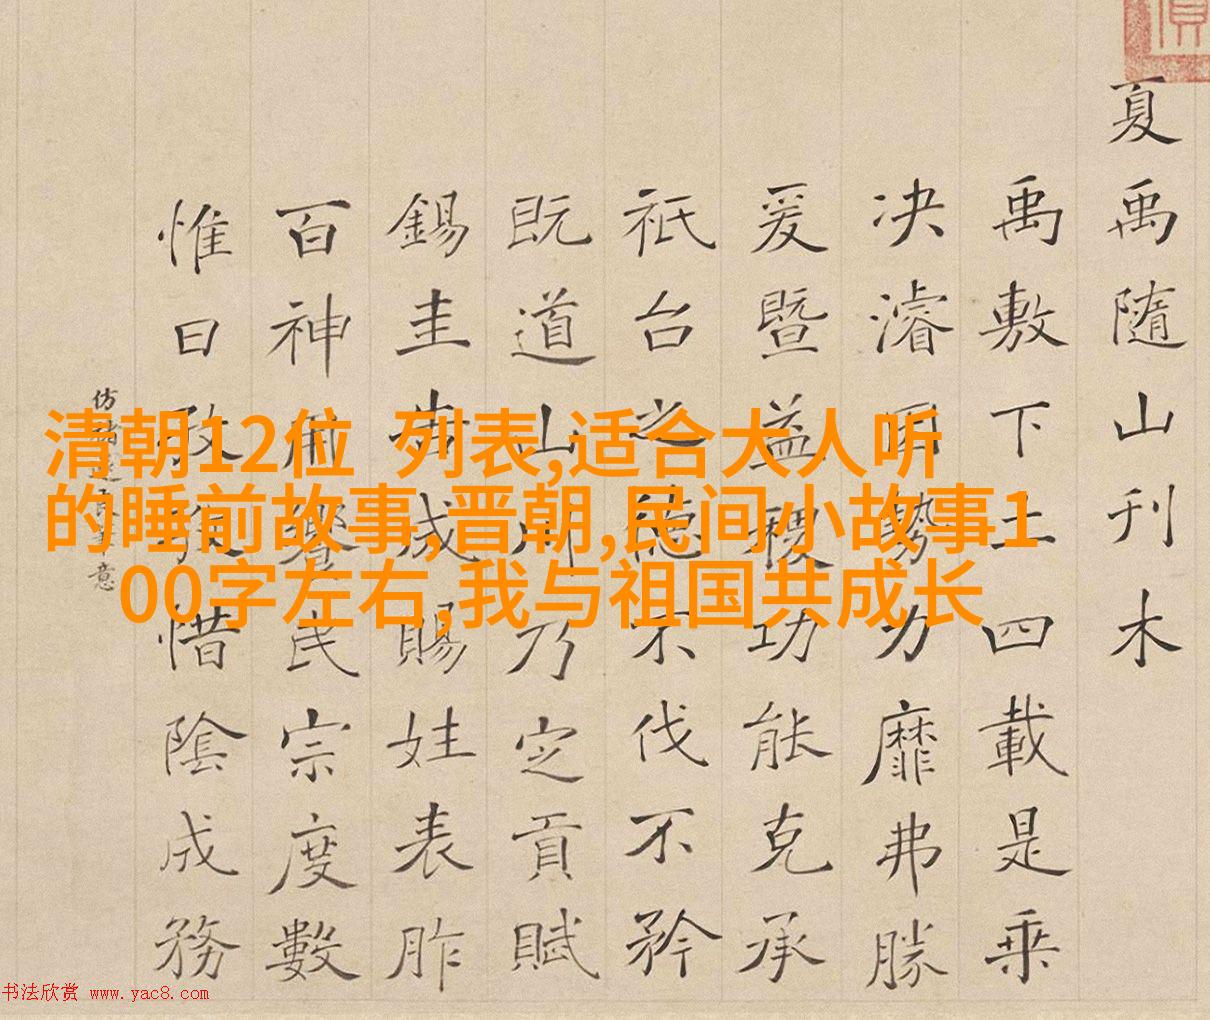 夏禹隨山刊木
禹敷下土四載是乘
决濬勢力靡弗勝
爰暨益稷功能克承
祇台之德不伐不矜
既道山川乃定貢賦
錫圭告成賜姓表胙
百神用饗民宗度數
惟日孜孜惜陰成務
仿褚遂良筆意
清朝12位 列表,适合大人听
的睡前故事,晋朝,民间小故事1
00字左右,我与祖国共成长
书法欣赏 www.yac8.com